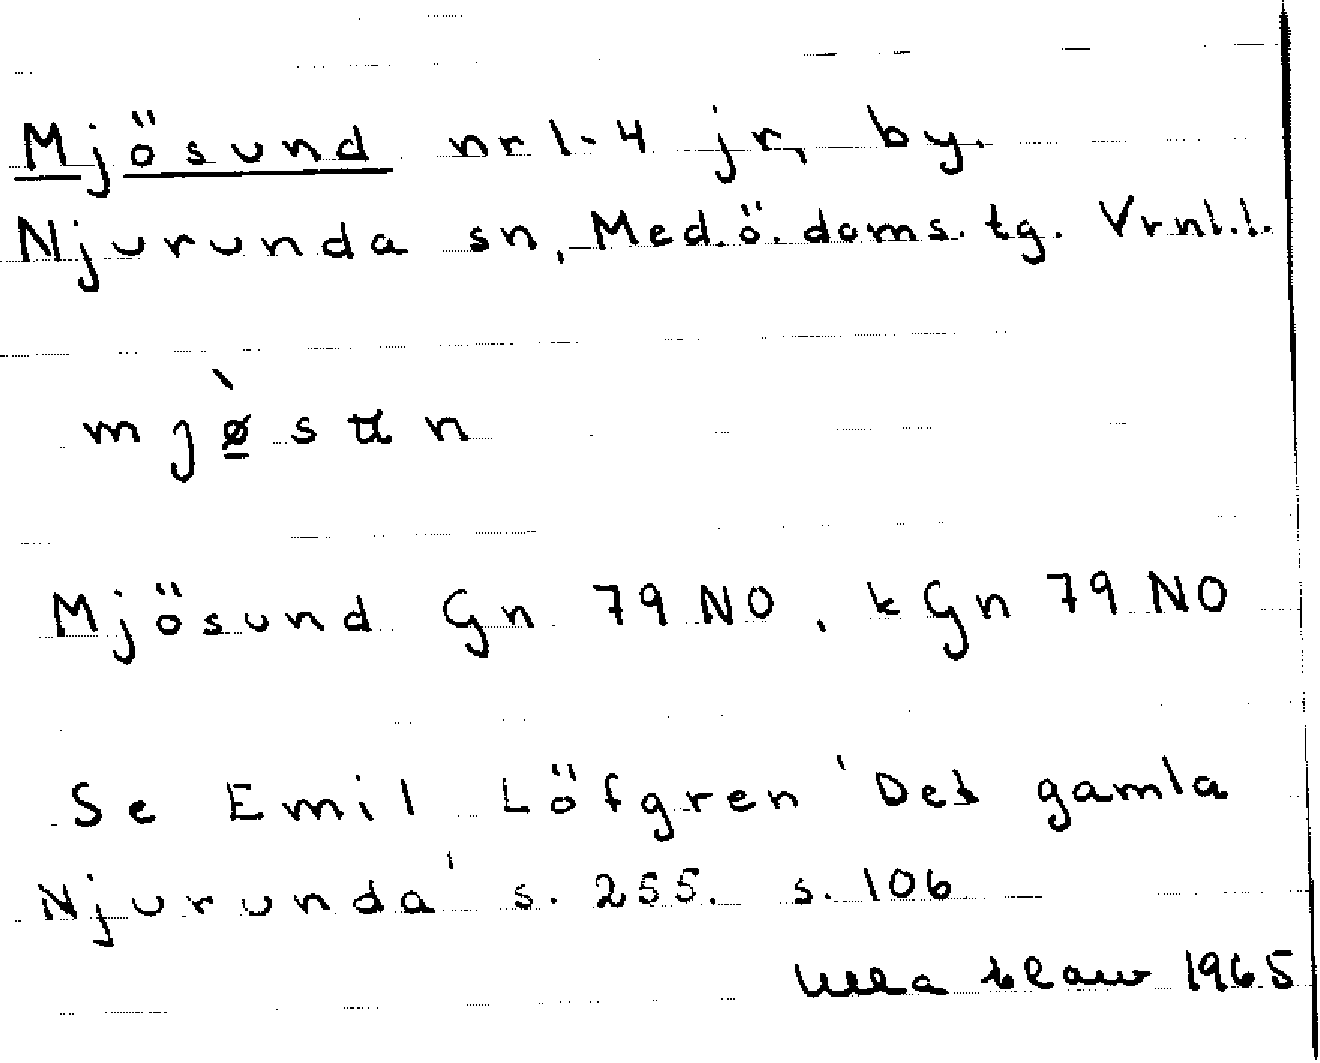 Mjösund nr 1-4 jr, by.
Njurunda sn, Med.ö. doms. tg. Vrnl.l.
mjø̱̀sun
Mjösund Gn 79 NO, kGn 79 NO
Se Emil Löfgren 'Det gamla
Njurunda' s. 255. s. 106
Ulla 1965